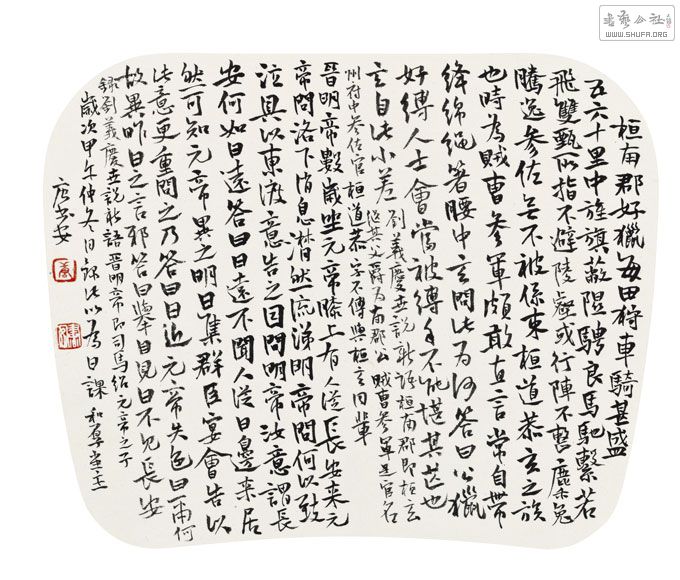 書藝公社
WWW.SHUFA.ORG
桓南郡好獵每田狩車騎甚盛
五六十里中旌旗蔽隰騁良馬馳擊若
飛雙甄所指不避陵壑或行陣不整麏兔
騰逸參佐無不被係束桓道恭玄之族
也時為賊曹參軍頗敢直言常自帶
絳綿繩著腰中玄問此為何答曰公獵
好縛人士會當被縛手不能堪其芒也
玄自此小差
劉義慶世說新語桓南郡即桓玄
襲其父爵為南郡公賊曹參軍是官名
州府中參佐官桓道恭字不傳與桓玄同輩
晉明帝數歲坐元帝膝上有人從長安來元
帝問洛下消息潸然流涕明帝問何以致
泣具以東渡意告之因問明帝汝意謂長
安何如日遠答曰日遠不聞人從日邊來居
然可知元帝異之明日集群臣宴會告以
此意更重問之乃答曰日近元帝失色曰爾何
故異昨日之言邪答曰舉目見日不見長安
錄劉義慶世說新語晉明帝即司馬紹元帝之子
歲次甲午仲冬日錄此以為日課和草堂主
唐書安